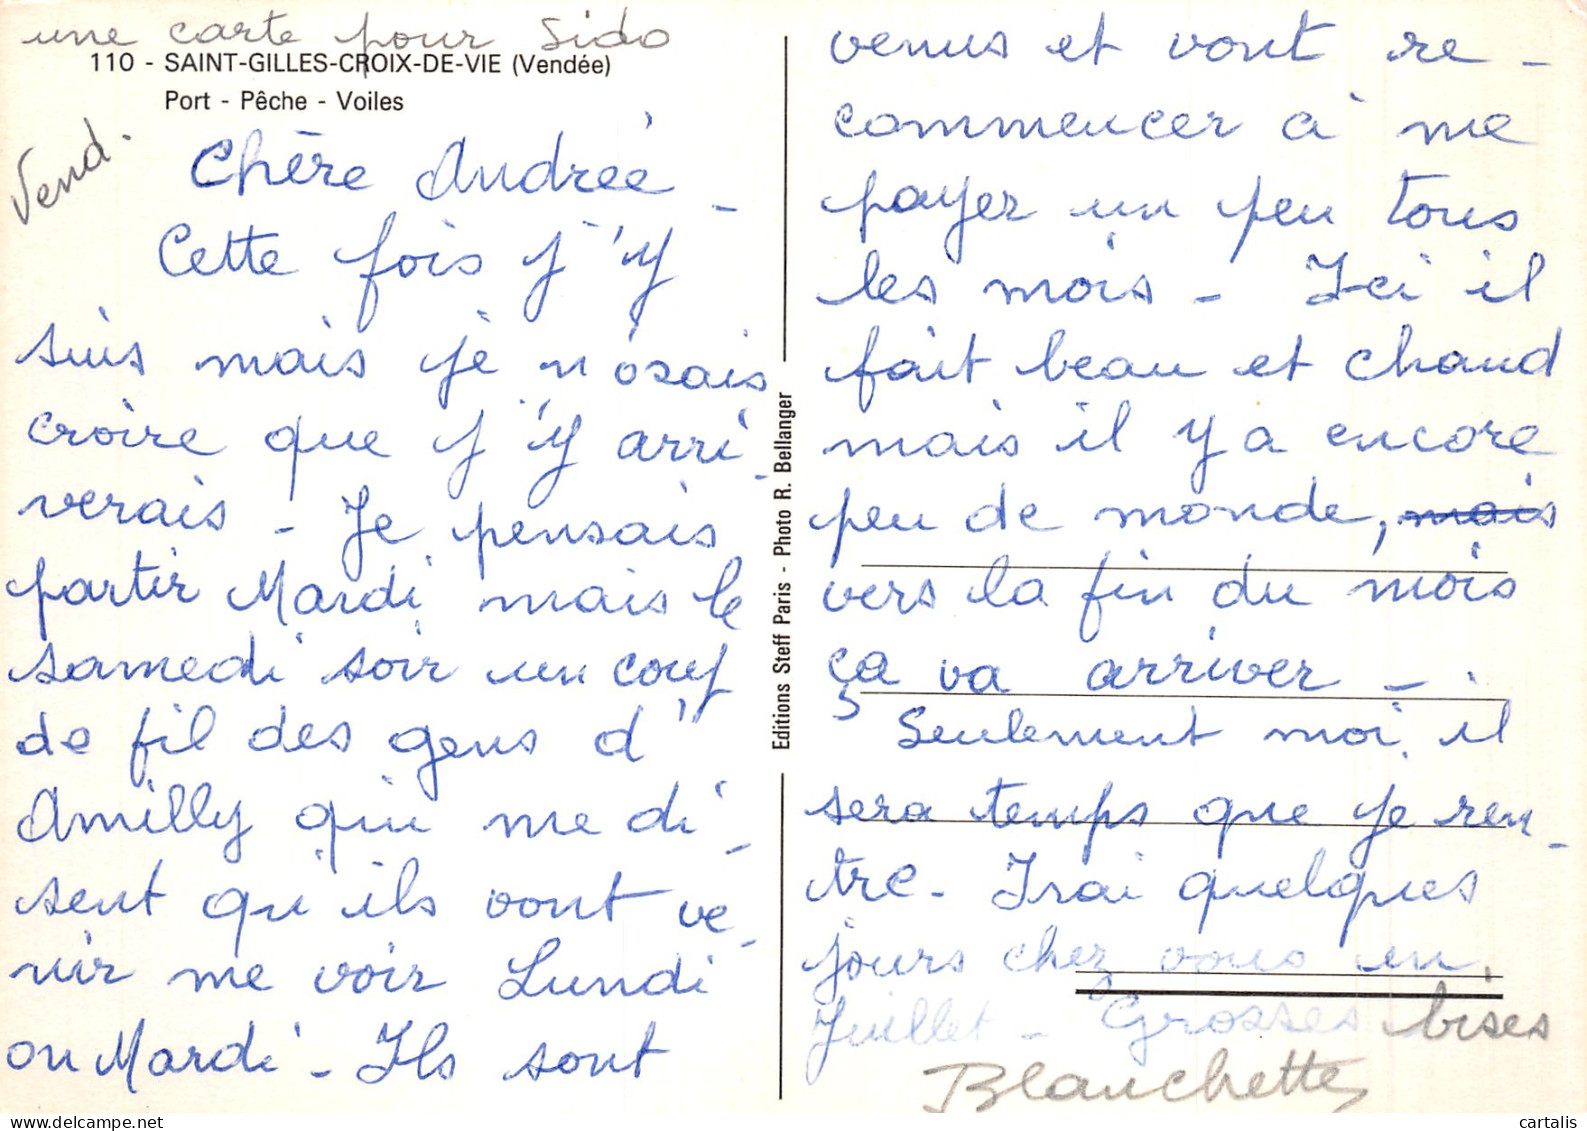 une carte pour Sido
110 - SAINT-GILLES-CROIX-DE-VIE (Vendée)
Port - Pêche - Voiles
Vend.
Chère Andrée -
Cette fois j'y
suis mais je n'osais
croire que j'y arri-
verais - Je pensais
partir Mardi mais le
samedi soir un coup
de fil des gens d'
Amilly qui me di-
sent qu'ils vont ve-
nir me voir Lundi
ou Mardi - Ils sont
Editions Steff Paris - Photo R. Bellanger
venus et vont re-
commencer à me
payer un peu tous
les mois - Ici il
fait beau et chaud
mais il y a encore
peu de monde, mais
vers la fin du mois
ça va arriver -
Seulement moi il
sera temps que je ren-
tre - Irai quelques
jours chez vous en
Juillet - Grosses bises
Blanchette
cartalis